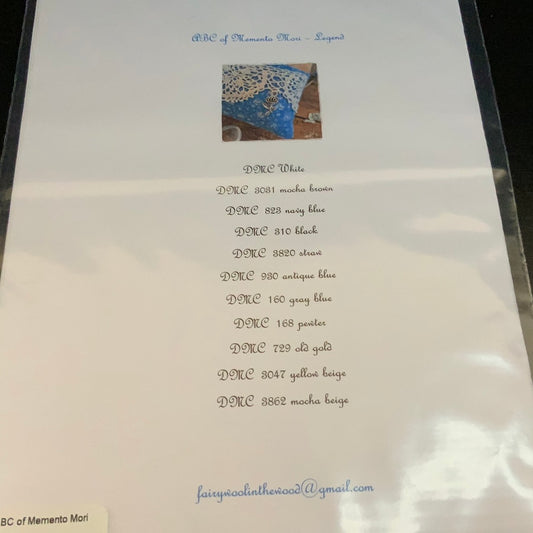 ABC of Memento Mori - Legend
DMC White
DMC 3031 mocha brown
DMC 823 navy blue
DMC 310 black
DMC 3820 straw
DMC 930 antique blue
DMC 160 gray blue
DMC 168 pewter
DMC 729 old gold
DMC 3047 yellow beige
DMC 3862 mocha beige
fairywoolinthewood@gmail.com
BC of Memento Mori